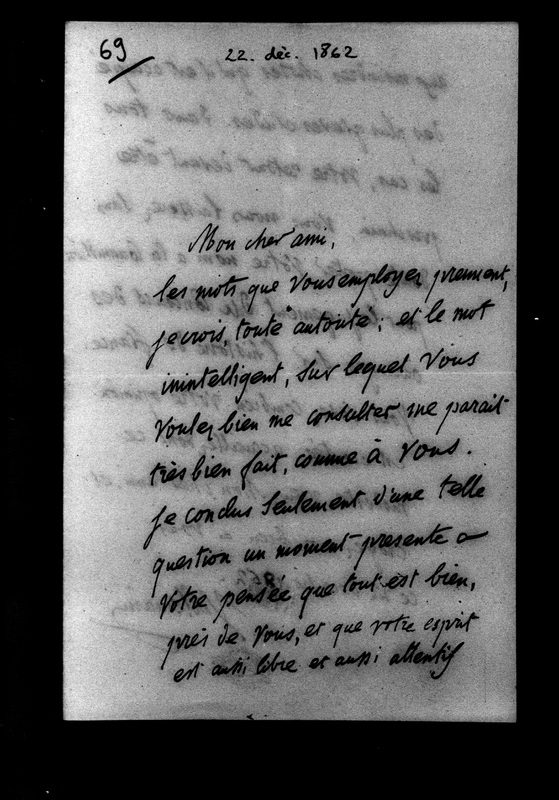 69
22. déc. 1862
Mon cher ami,
les mots que vous employez prennent,
je crois, toute autorité; et le mot
inintelligent, sur lequel vous
voulez bien me consulter me parait
très bien fait, comme à vous.
Je conclus seulement d'une telle
question un moment présente a
votre pensée que tout est bien,
près de vous, et que votre esprit
est aussi libre et aussi attentif